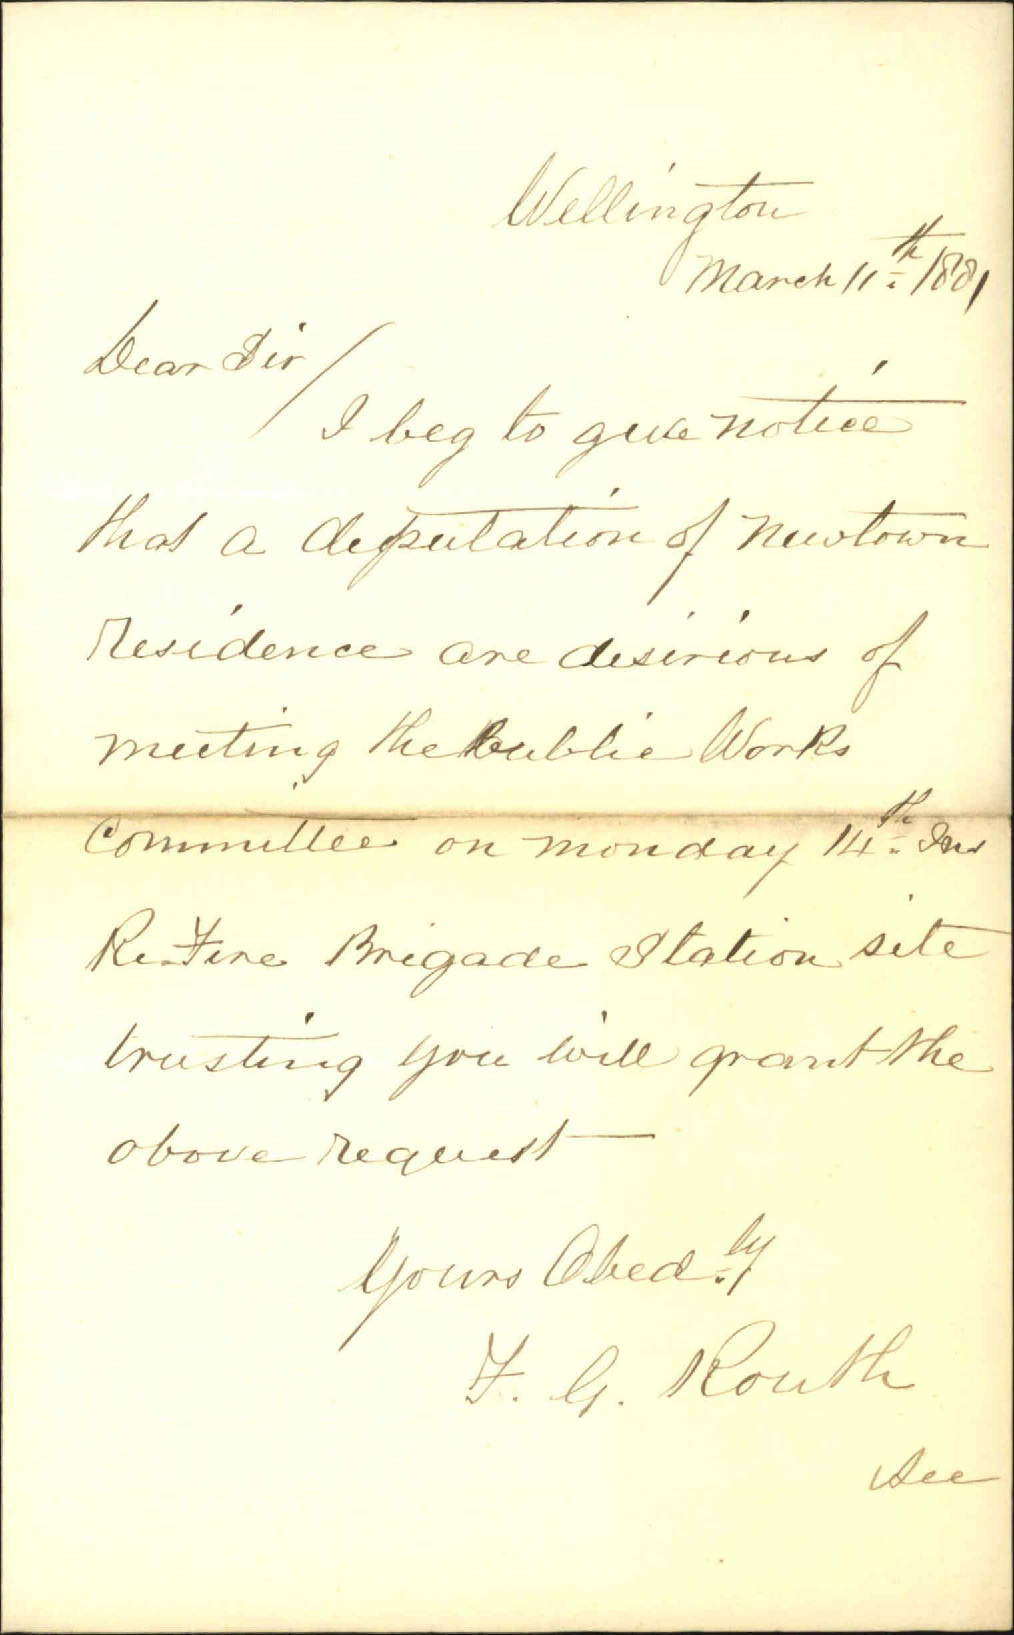 Wellington
March 11th 1881
Dear Sir/
I beg to give notice
that a deputation of Newtown
Residence are desirious of
meeting the Public Works
Committee on monday 14th Ins
Re Fire Brigade Station site
trusting you will grant the
above request
Yours Obedly
F. G. Routh
Sec